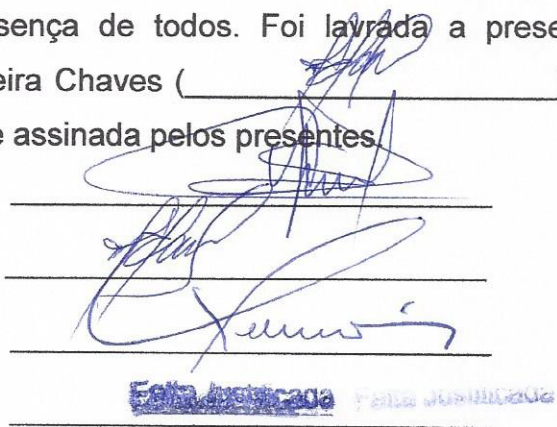 sença de todos. Foi lavrada a prese
eira Chaves (
e assinada pelos presentes
Falta Justificada Falta Justificada